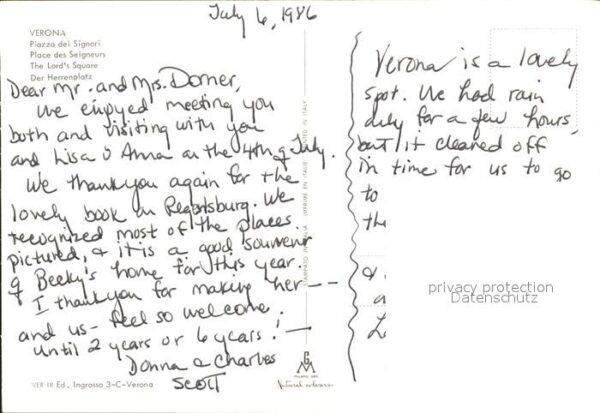 July 6, 1986
VERONA
Piazza dei Signori
Place des Seigneurs
The Lord's Square
Der Herrenplatz
Dear Mr. and Mrs. Dorner,
We enjoyed meeting you
both and visiting with you
and Lisa & Anna on the 4th of July.
We thank you again for the
lovely book on Regensburg. We
recognized most of the places
pictured, & it is a good souvenir
of Becky's home for this year.
I thank you for making her --
and us - feel so welcome.
Until 2 years or 6 years! -
Donna & Charles
SCOTT
VER 18 Ed. Ingrosso 3-C-Verona
STAMPATO IN ITALIA IMPRIMÉ EN ITALIE PRINTED IN ITALY
Natural colours
Verona is a lovely
spot. We had rain
only for a few hours,
but it cleared off
in time for us to go
to
the
&
a
privacy protection
Datenschutz